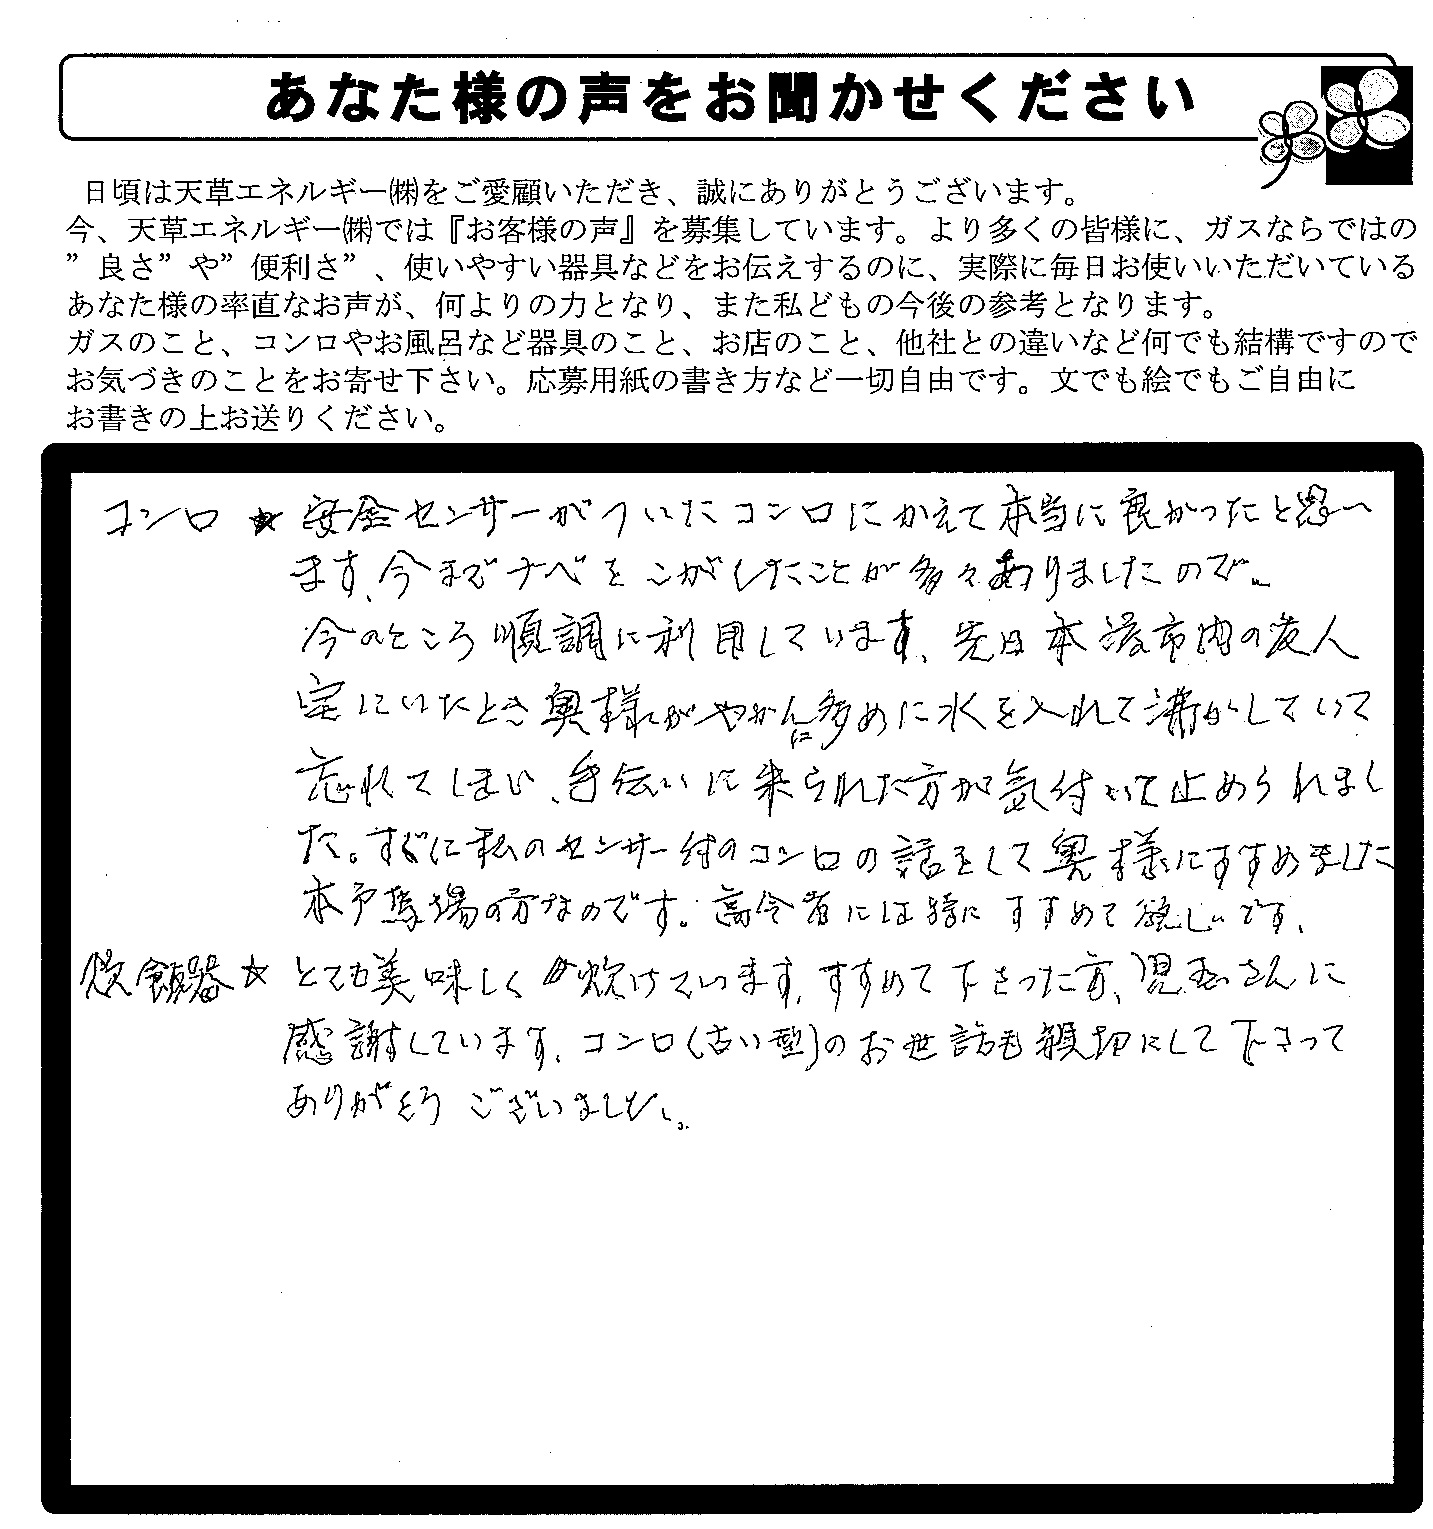 あなた様の声をお聞かせください
日頃は天草エネルギー㈱をご愛顧いただき、誠にありがとうございます。
今、天草エネルギー㈱では『お客様の声』を募集しています。より多くの皆様に、ガスならではの
”良さ”や”便利さ”、使いやすい器具などをお伝えするのに、実際に毎日お使いいただいている
あなた様の率直なお声が、何よりの力となり、また私どもの今後の参考となります。
ガスのこと、コンロやお風呂など器具のこと、お店のこと、他社との違いなど何でも結構ですので
お気づきのことをお寄せ下さい。応募用紙の書き方など一切自由です。文でも絵でもご自由に
お書きの上お送りください。
コンロ ★ 安全センサーがついたコンロにかえて本当に良かったと思い
ます、今までナベをこがしたことが多々ありましたので。
今のところ順調に利用しています、先日本渡市内の友人
宅にいたとき奥様がやかんに多めに水を入れて沸かしていて
忘れてしまい、手伝いに来られた方が気付いて止められまし
た。すぐに私のセンサー付のコンロの話をして奥様にすすめました
本戸馬場の方なのです。高令者には特にすすめて欲しいです、
炊飯器 ☆ とても美味しく炊けています、すすめて下さった方、児玉さんに
感謝しています、コンロ(古い型)のお世話も親切にして下さって
ありがとうございました。